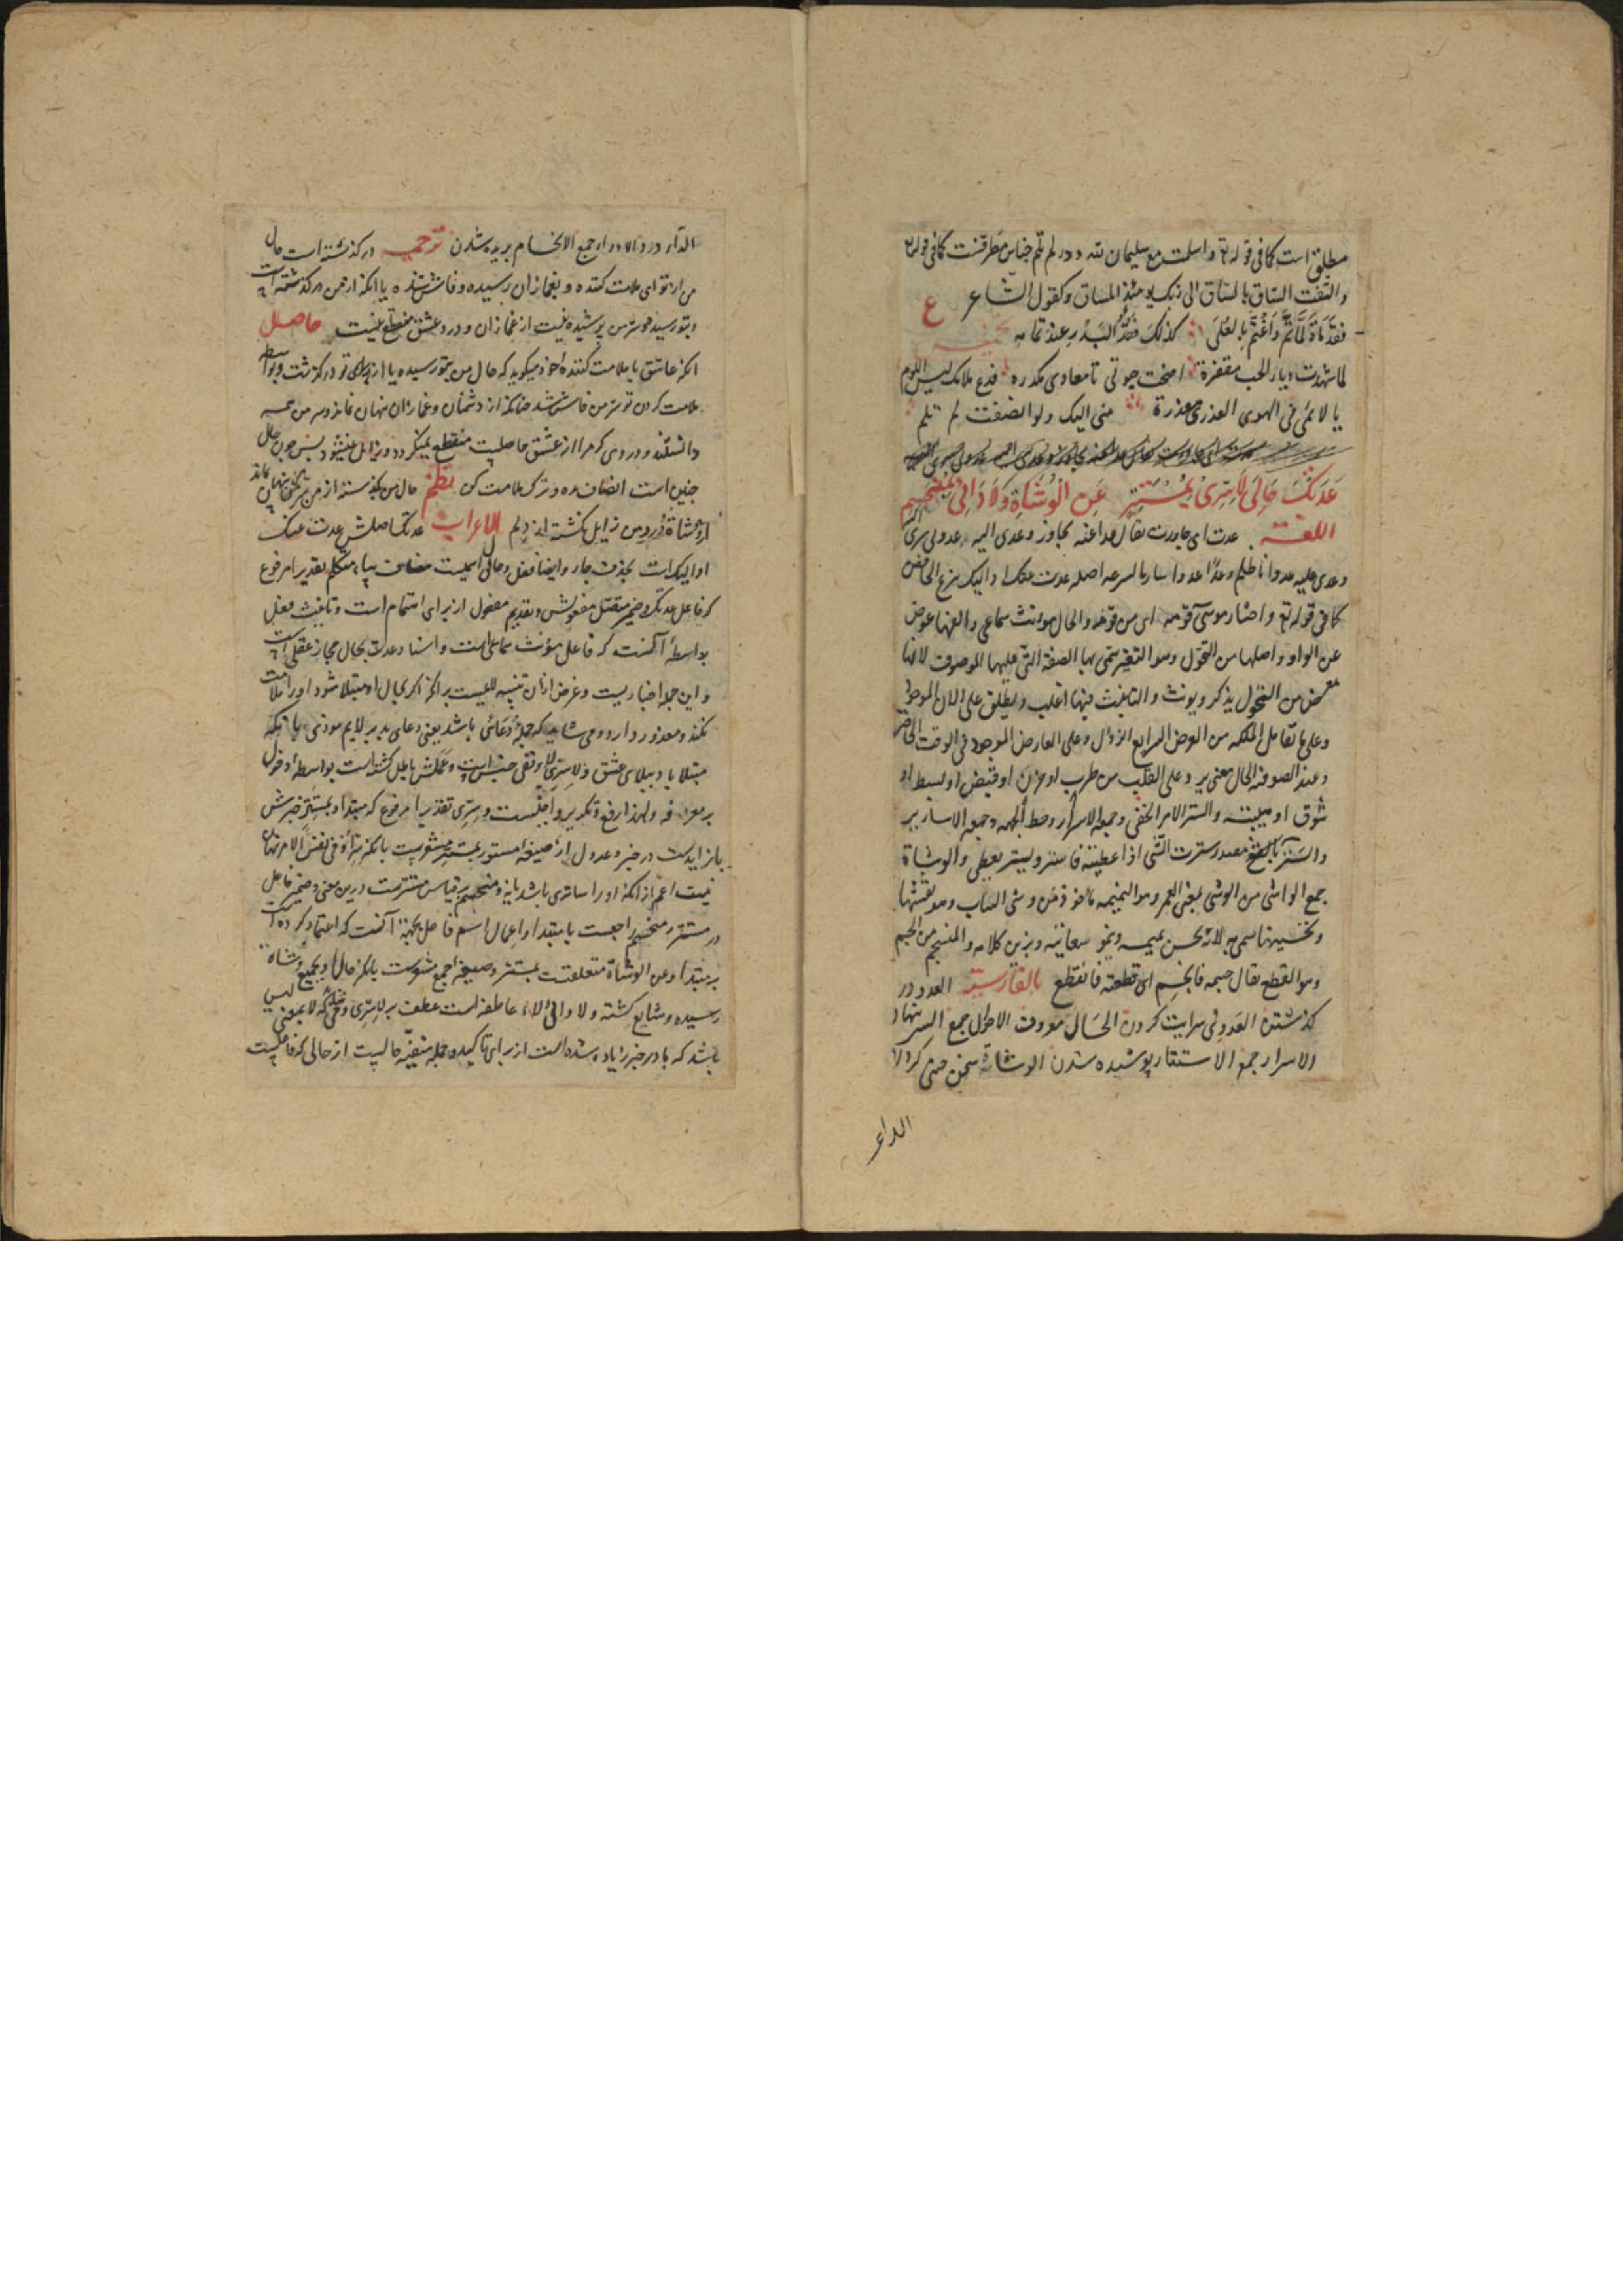 مطلق است کما فی قوله تع و اسلمت مع سلیمان لله و در لم تلم جناس مطرفست کما فی قوله تع
والتفت الساق بالساق الی ربک یومئذ المساق و کقول الشاعر ع
کذلک البدر عند تمامه
لما شهدت دیار الحب مقفرة اضحت حیوتی تا معادی مکدره فدع ملامک لیس اللوم
یا لائمی فی الهوی العذری معذرة منی الیک ولو انصفت لم تلم
عَدَتْکَ حَالِیَ لَا سِرِّی بِمُسْتَتِرٍ عَنِ الْوُشَاةِ وَلَا دَائِی بِمُنْحَسِمِ
اللغة عدت ای جاوزت یقال عدا عنه تجاوز وعدی الیه عدوی سری
وعدی علیه عدوانا ظلم وعدا عدوا سار بالسرعه اصله عدت عنک او الیک بنزع الخافض
کما فی قوله تع واختار موسی قومه ای من قومه والحال مؤنث سماعی والفها عوض
عن الواو واصلها من التحول وهو التغیر سمی بها الصفة التی علیها الموصوف لانها
من التحول یذکر ویونث والتانیث فیها اغلب ویطلق علی الآن الموجود
وعلی ما تقابل الملکه من العرض السریع الزوال وعلی العارض الموجود فی الوقت الحاضر
وعند الصوفیه الحال معنی یرد علی القلب من طرب او حزن او قبض او بسط او
شوق او هیبته والسر الامر الخفی وجمعه الاسرار وخط الجبهه وجمعه الاساریر
والستر بالفتح مصدر سترت الشی اذا غطیته فاستتر ویستر یغطی والوشاة
جمع الواشی من الوشی بمعنی الغمز وهو النمیمه ماخوذ من وشی الثیاب وهو نقشها
وتحسینها سمی به لانه یحسن نمیمه ونحو سعایته ویزین کلامه والمنحسم من الحسم
وهو القطع یقال حسمه فانحسم ای قطعته فانقطع بالفارسیته العدو در
گذشتن العدوی سرایت کردن الحال معروف الاحوال جمع السر نهان
الاسرار جمع الاستتار پوشیده شدن الوشاة سخن چینی کردن
الداء
الداء درد الادواء جمع الانحسام بریده شدن ترجمه در گذشته است حال
من از تو ای ملامت کننده و بغمازان رسیده و فاش شده یا آنکه از من در گذشته است
و بتو رسیده سر من پوشیده نیست از غمازان و درد عشق منقطع نیست حاصل
آنکه عاشق با ملامت کننده خود میگوید که حال من بتو رسیده یا از برای تو در گذشت و بواسطه
ملامت کردن تو سر من فاش شد چنانکه از دشمنان و غمازان نهان نماند و سر من همه
دانستند و دردی که مرا از عشق حاصلیت منقطع نمیگردد و زایل نمیشود پس چون حال
چنین است انصاف ده و ترک ملامت کن نظم حال من بگذشته از من نهان نماند
از وشاة و درد من زایل نگشته از دلم الاعراب عدتک اصلش عدت عنک
او الیک است بحذف جار و ایصال فعل و حالی اسمیست مضاف بیاء متکلم تقدیرا مرفوع
که فاعل عدتک و ضمیر متصل مفعولش و تقدیم مفعول از برای اهتمام است و تانیث فعل
بواسطه آنست که فاعل مؤنث سماعی است و اسناد عدت بحال مجاز عقلی است
و این جمله اخباریست و غرض از آن تنبیه لایمست بر آنکه اگر بحال او مبتلا شود او را ملامت
نکند و معذور دارد و می شاید که جمله دعائی باشد یعنی دعای بد بر لایم موذی یا آنکه
مبتلا باد ببلای عشق ولا سری لاء نفی جنس است و عملش باطل گشته است بواسطه دخول
بر معرفه و لهذا رفع و تکریر واجبست و سری تقدیرا مرفوع که مبتدا و بمستتر خبرش
با زایدست در خبر و عدول از صیغه مستور بمستتر مشعرست بآنکه سر او فی نفس الامر نهان
نیست اعم از آنکه او را ساتری باشد یا نه و منحسم بر قیاس مستترست درین معنی و ضمیر فاعل
در مستتر و منحسم راجعست با مبتدا و اعمال اسم فاعل بجهة آنست که اعتماد کرده است
بر مبتدا و عن الوشاة متعلقست بمستتر و صیغه جمع مشعرست بآنکه حال او بجمیع وشاة
رسیده و شایع گشته ولا دائی الا و عاطفه است عطف بر لا سری و می شاید که لا بمعنی لیس
باشد که با در خبر زیاده شده است از برای تاکید و جمله منفیه حالیست از حالی که فاعلیست